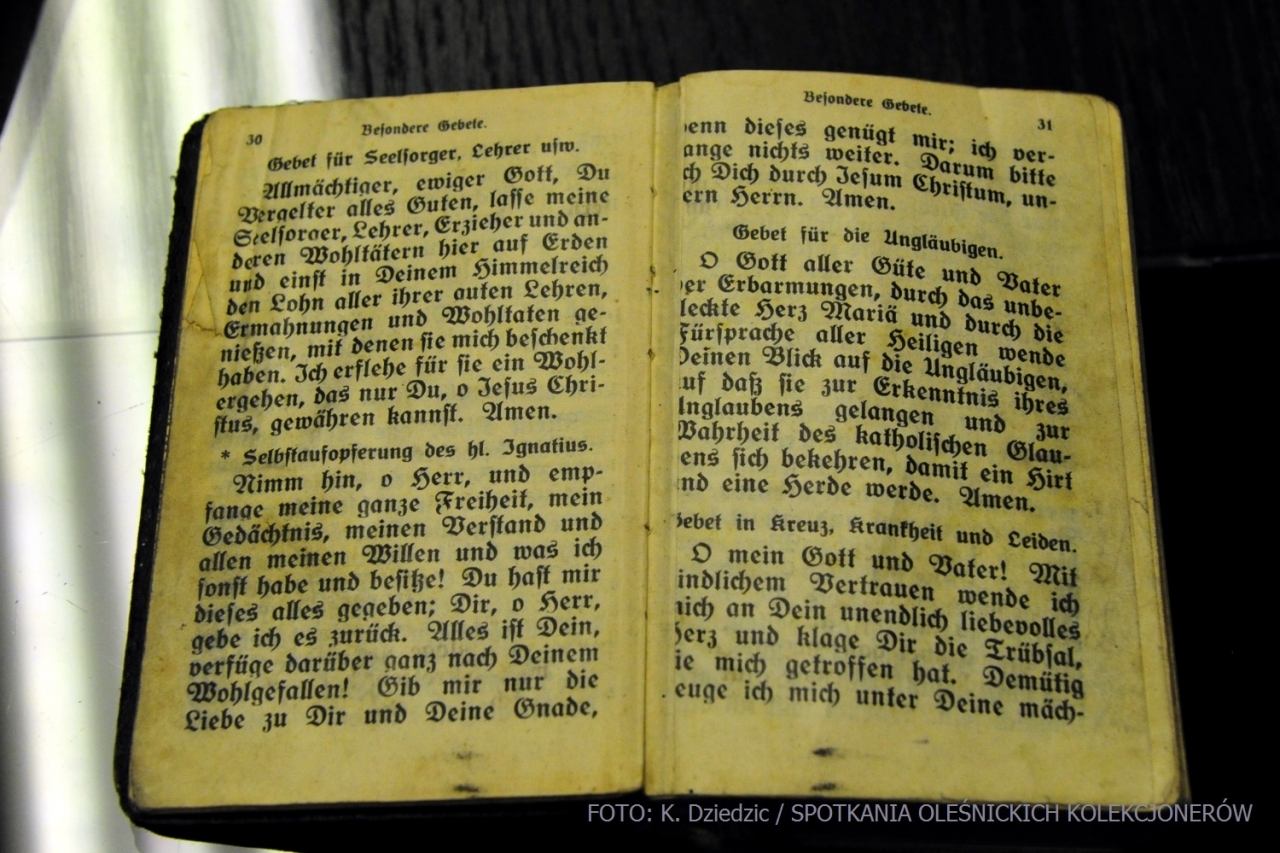 30
Besondere Gebete.
Gebet für Seelsorger, Lehrer usw.
Allmächtiger, ewiger Gott, Du
Vergelter alles Guten, lasse meine
Seelsorger, Lehrer, Erzieher und an-
deren Wohltätern hier auf Erden
und einst in Deinem Himmelreich
den Lohn aller ihrer guten Lehren,
Ermahnungen und Wohltaten ge-
nießen, mit denen sie mich beschenkt
haben. Ich erflehe für sie ein Wohl-
ergehen, das nur Du, o Jesus Chri-
stus, gewähren kannst. Amen.
* Selbstaufopferung des hl. Ignatius.
Nimm hin, o Herr, und emp-
fange meine ganze Freiheit, mein
Gedächtnis, meinen Verstand und
allen meinen Willen und was ich
sonst habe und besitze! Du hast mir
dieses alles gegeben; Dir, o Herr,
gebe ich es zurück. Alles ist Dein,
verfüge darüber ganz nach Deinem
Wohlgefallen! Gib mir nur die
Liebe zu Dir und Deine Gnade,
Besondere Gebete.
31
enn dieses genügt mir; ich ver-
ange nichts weiter. Darum bitte
ch Dich durch Jesum Christum, un-
ern Herrn. Amen.
Gebet für die Ungläubigen.
O Gott aller Güte und Vater
er Erbarmungen, durch das unbe-
leckte Herz Mariä und durch die
Fürsprache aller Heiligen wende
Deinen Blick auf die Ungläubigen,
uf daß sie zur Erkenntnis ihres
Unglaubens gelangen und zur
Wahrheit des katholischen Glau-
ens sich bekehren, damit ein Hirt
nd eine Herde werde. Amen.
Gebet in Kreuz, Krankheit und Leiden.
O mein Gott und Vater! Mit
indlichem Vertrauen wende ich
ich an Dein unendlich liebevolles
Herz und klage Dir die Trübsal,
ie mich getroffen hat. Demütig
euge ich mich unter Deine mäch-
FOTO: K. Dziedzic / SPOTKANIA OLEŚNICKICH KOLEKCJONERÓW